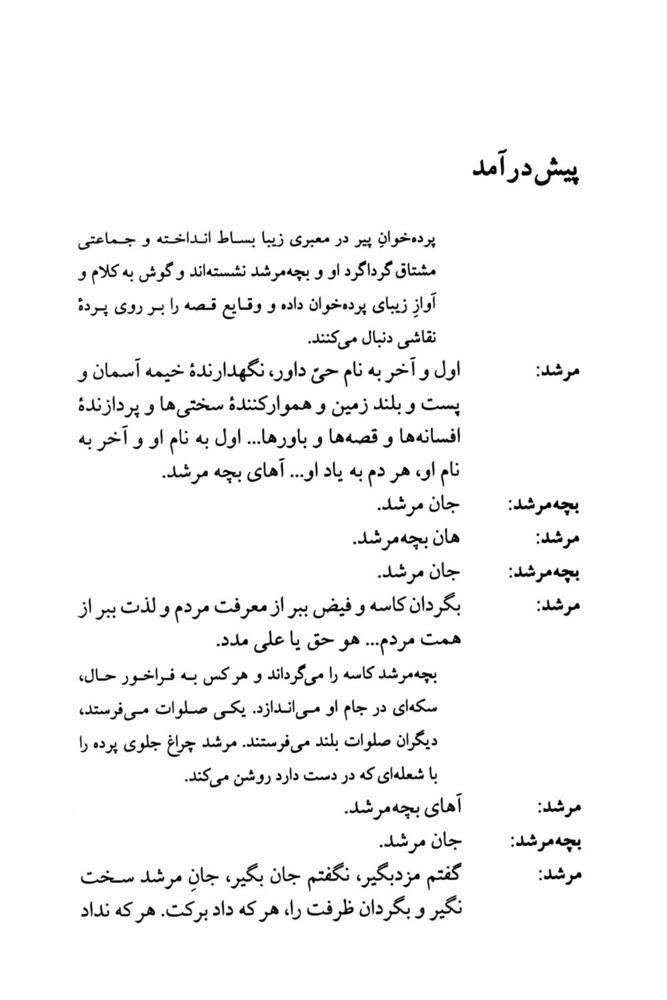 پیش‌درآمد
پرده‌خوانِ پیر در معبری زیبا بساط انداخته و جماعتی
مشتاق گرداگرد او و بچه‌مرشد نشسته‌اند و گوش به کلام و
آوازِ زیبای پرده‌خوان داده و وقایع قصه را بر روی پردۀ
نقاشی دنبال می‌کنند.
مرشد: اول و آخر به نام حیّ داور، نگهدارندۀ خیمه آسمان و
پست و بلند زمین و هموارکنندۀ سختی‌ها و پردازندۀ
افسانه‌ها و قصه‌ها و باورها... اول به نام او و آخر به
نام او، هر دم به یاد او... آهای بچه مرشد.
بچه‌مرشد: جان مرشد.
مرشد: هان بچه‌مرشد.
بچه‌مرشد: جان مرشد.
مرشد: بگردان کاسه و فیض ببر از معرفت مردم و لذت ببر از
همت مردم... هو حق یا علی مدد.
بچه‌مرشد کاسه را می‌گرداند و هرکس به فراخور حال،
سکه‌ای در جام او می‌اندازد. یکی صلوات می‌فرستد،
دیگران صلوات بلند می‌فرستند. مرشد چراغ جلوی پرده را
با شعله‌ای که در دست دارد روشن می‌کند.
مرشد: آهای بچه‌مرشد.
بچه‌مرشد: جان مرشد.
مرشد: گفتم مزدبگیر، نگفتم جان بگیر، جانِ مرشد سخت
نگیر و بگردان ظرفت را، هرکه داد برکت. هرکه نداد